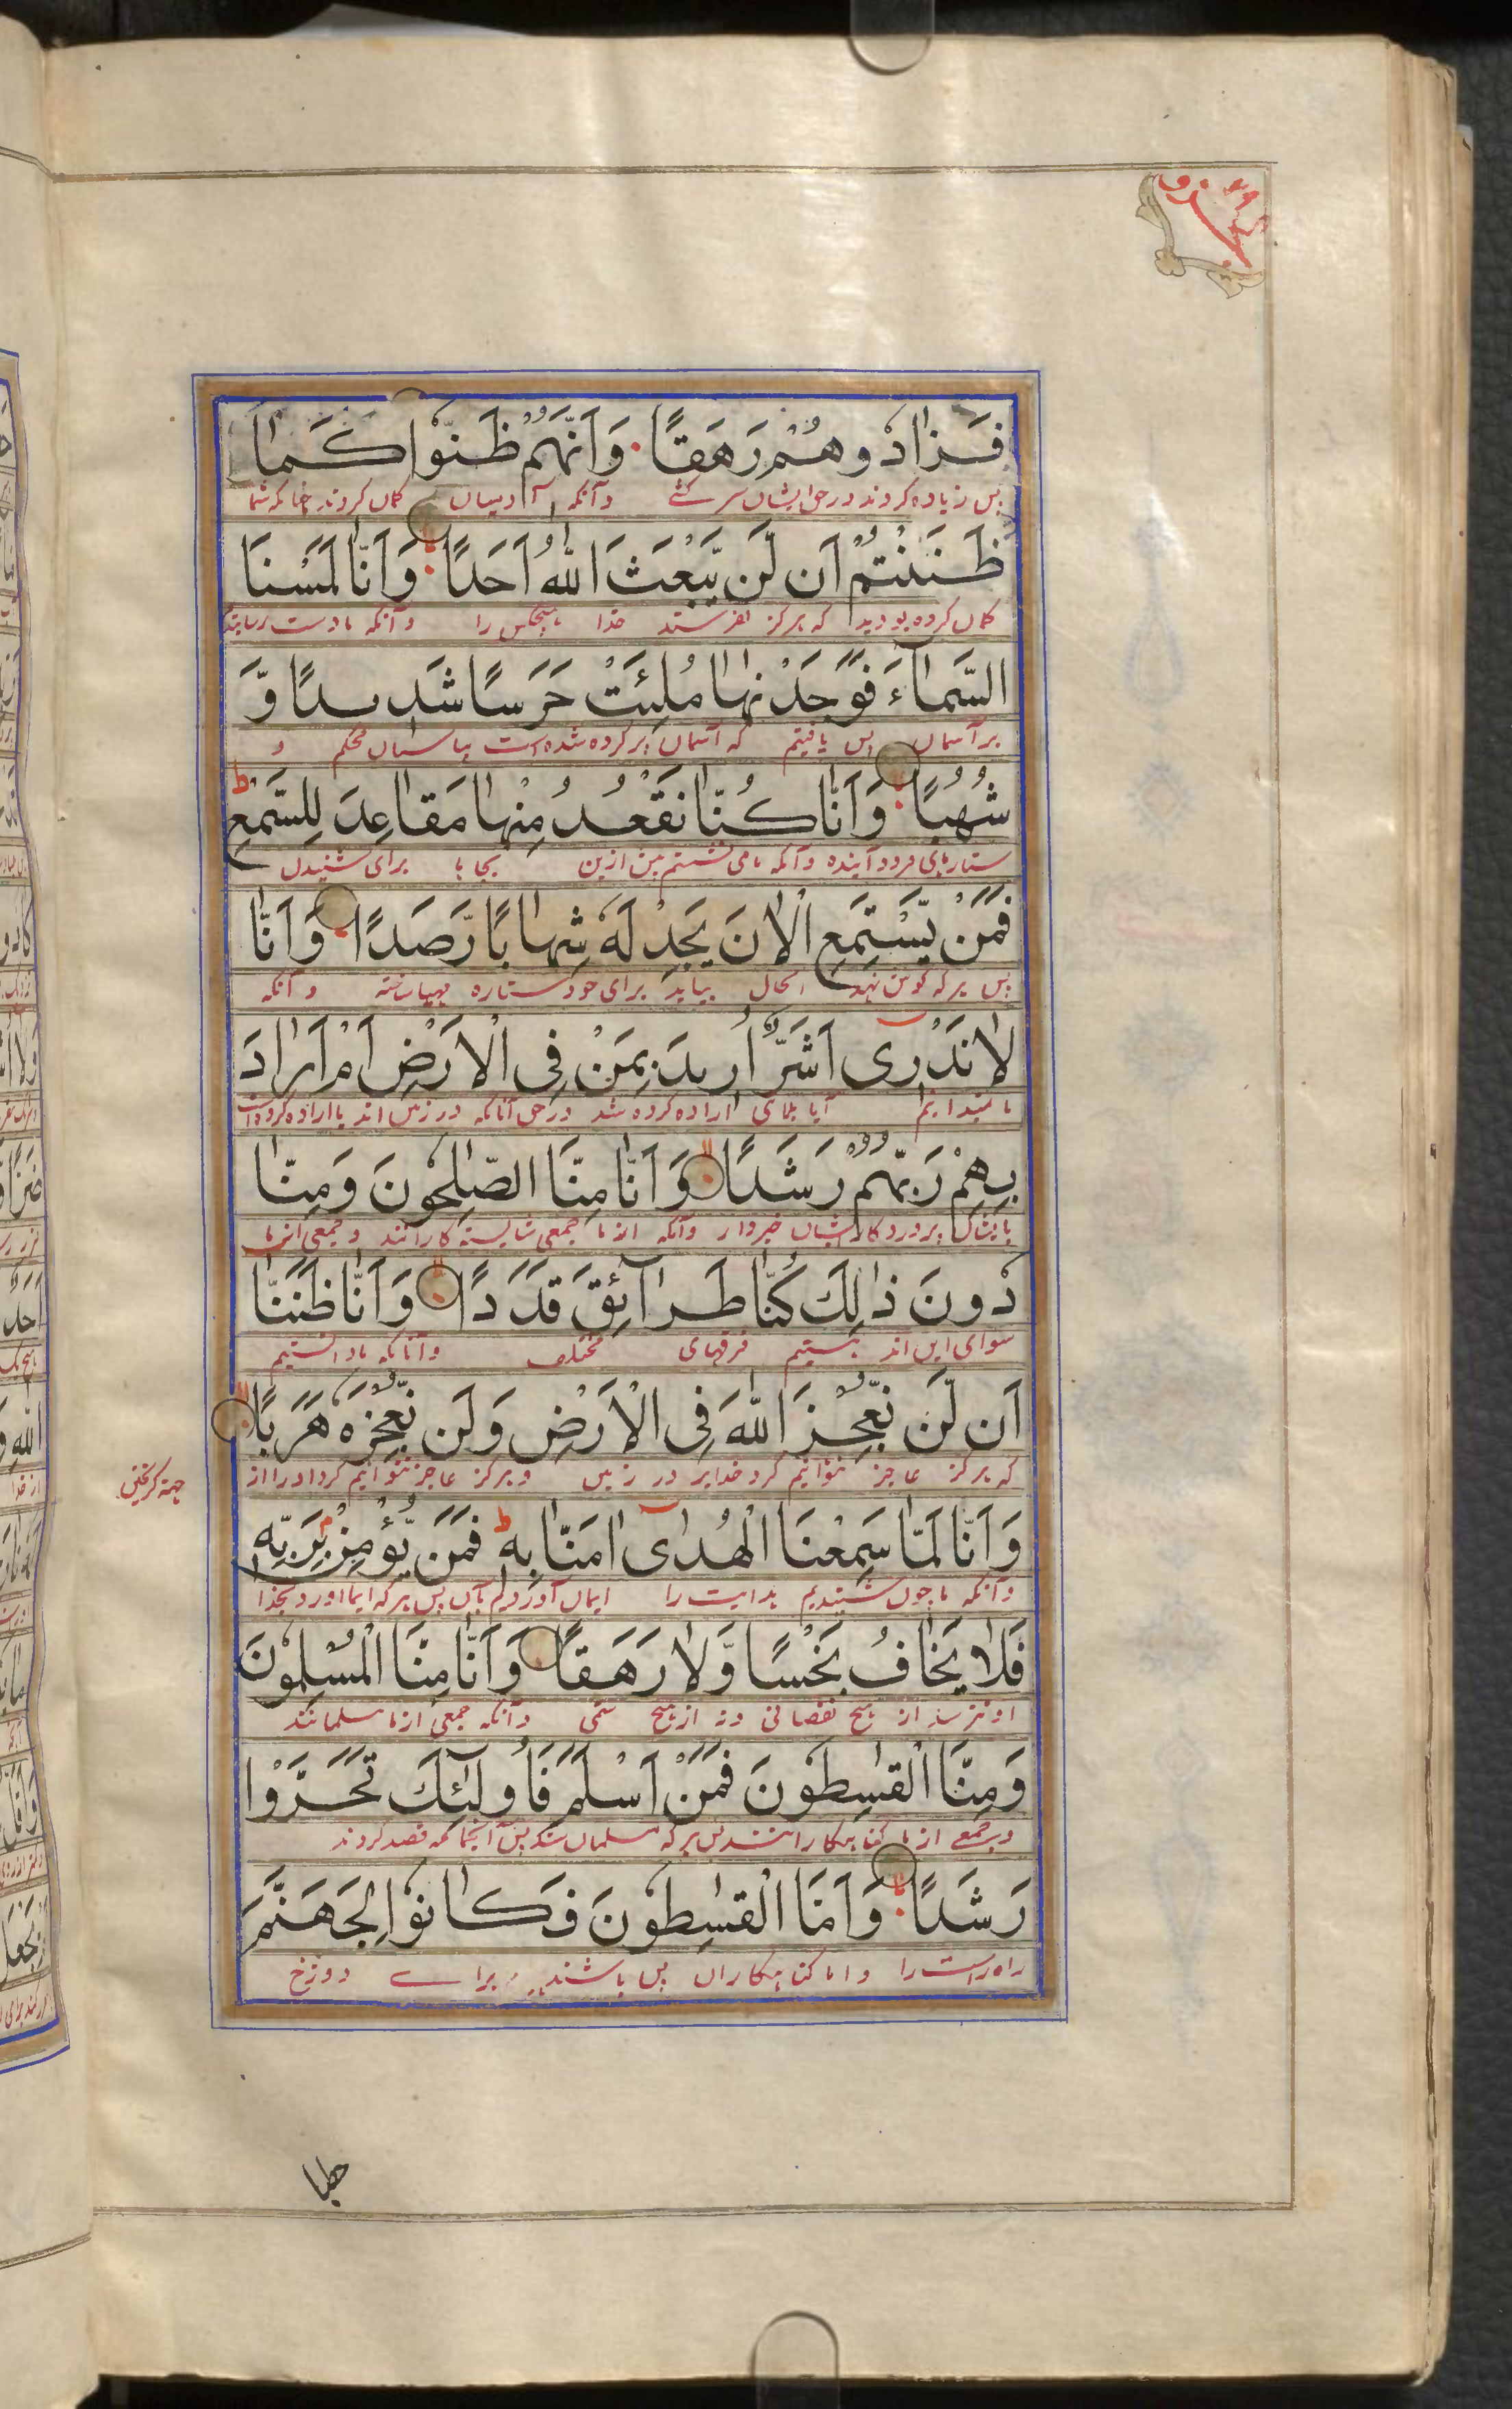 جزو ٢٩
فَزَادُوهُمْ رَهَقًا وَاَنَّهُمْ ظَنُّوْا كَمَا
پس زیاده کردند در حق ایشان سرکشی وآنکه آدمیان گمان کردند چنانکه شما
ظَنَنْتُمْ اَن لَّن يَّبْعَثَ اللّٰهُ اَحَدًا وَاَنَّا لَمَسْنَا
گمان کرده بودید که هرگز نفرستد خدا هیچکس را وآنکه ما دست رسانیدیم
السَّمَآءَ فَوَجَدْنٰهَا مُلِئَتْ حَرَسًا شَدِيدًا وَّ
برآسمان پس یافتیم که آسمان پر کرده شده است بپاسبان محکم و
شُهُبًا وَاَنَّا كُنَّا نَقْعُدُ مِنْهَا مَقَاعِدَ لِلسَّمْعِ ط
ستارهای فرود آینده وآنکه ما می نشستیم پیش ازین بجاها برای شنیدن
فَمَنْ يَّسْتَمِعِ الْاٰنَ يَجِدْ لَهٗ شِهَابًا رَّصَدًا وَاَنَّا
پس هر که گوش نهد الحال بیابد برای خود ستاره مهیا ساخته وآنکه
لَا نَدْرِى اَشَرٌّ اُرِيدَ بِمَنْ فِى الْاَرْضِ اَمْ اَرَادَ
ما نمیدانیم آیا بلای اراده کرده شد در حق آنانکه در زمین اند یا اراده کرده است
بِهِمْ رَبُّهُمْ رَشَدًا وَاَنَّا مِنَّا الصّٰلِحُونَ وَمِنَّا
بایشان پروردگار ایشان خیر وآنکه از ما جمعی شایسته کارانند و جمعی از ما
دُونَ ذٰلِكَ كُنَّا طَرَآئِقَ قِدَدًا وَاَنَّا ظَنَنَّا
سوای این اند هستیم فرقهای مختلف وآنانکه ما دانستیم
اَن لَّن نُّعْجِزَ اللّٰهَ فِى الْاَرْضِ وَلَن نُّعْجِزَهٗ هَرَبًا
که هرگز عاجز نتوانیم کرد خدایرا در زمین و هرگز عاجز نتوانیم کرد او را از
جهة گریختن
وَاَنَّا لَمَّا سَمِعْنَا الْهُدٰىٓ اٰمَنَّا بِهٖ ط فَمَن يُّؤْمِنْ بِرَبِّهٖ
وآنکه ما چون شنیدیم هدایت را ایمان آوردیم بآن پس هر که ایمان آورد بخدا
فَلَا يَخَافُ بَخْسًا وَّلَا رَهَقًا وَاَنَّا مِنَّا الْمُسْلِمُونَ
او نترسد از هیچ نقصانی ونه از هیچ ستمی وآنکه جمعی از ما مسلمانند
وَمِنَّا الْقٰسِطُونَ فَمَنْ اَسْلَمَ فَاُولٰٓئِكَ تَحَرَّوْا
وجمعی از ما گناهکارانند پس هر که مسلمان شد پس آنجماعه قصد کردند
رَشَدًا وَاَمَّا الْقٰسِطُونَ فَكَانُوْا لِجَهَنَّمَ
راه راست را واما گناهکاران پس باشند برای دوزخ
حطبا